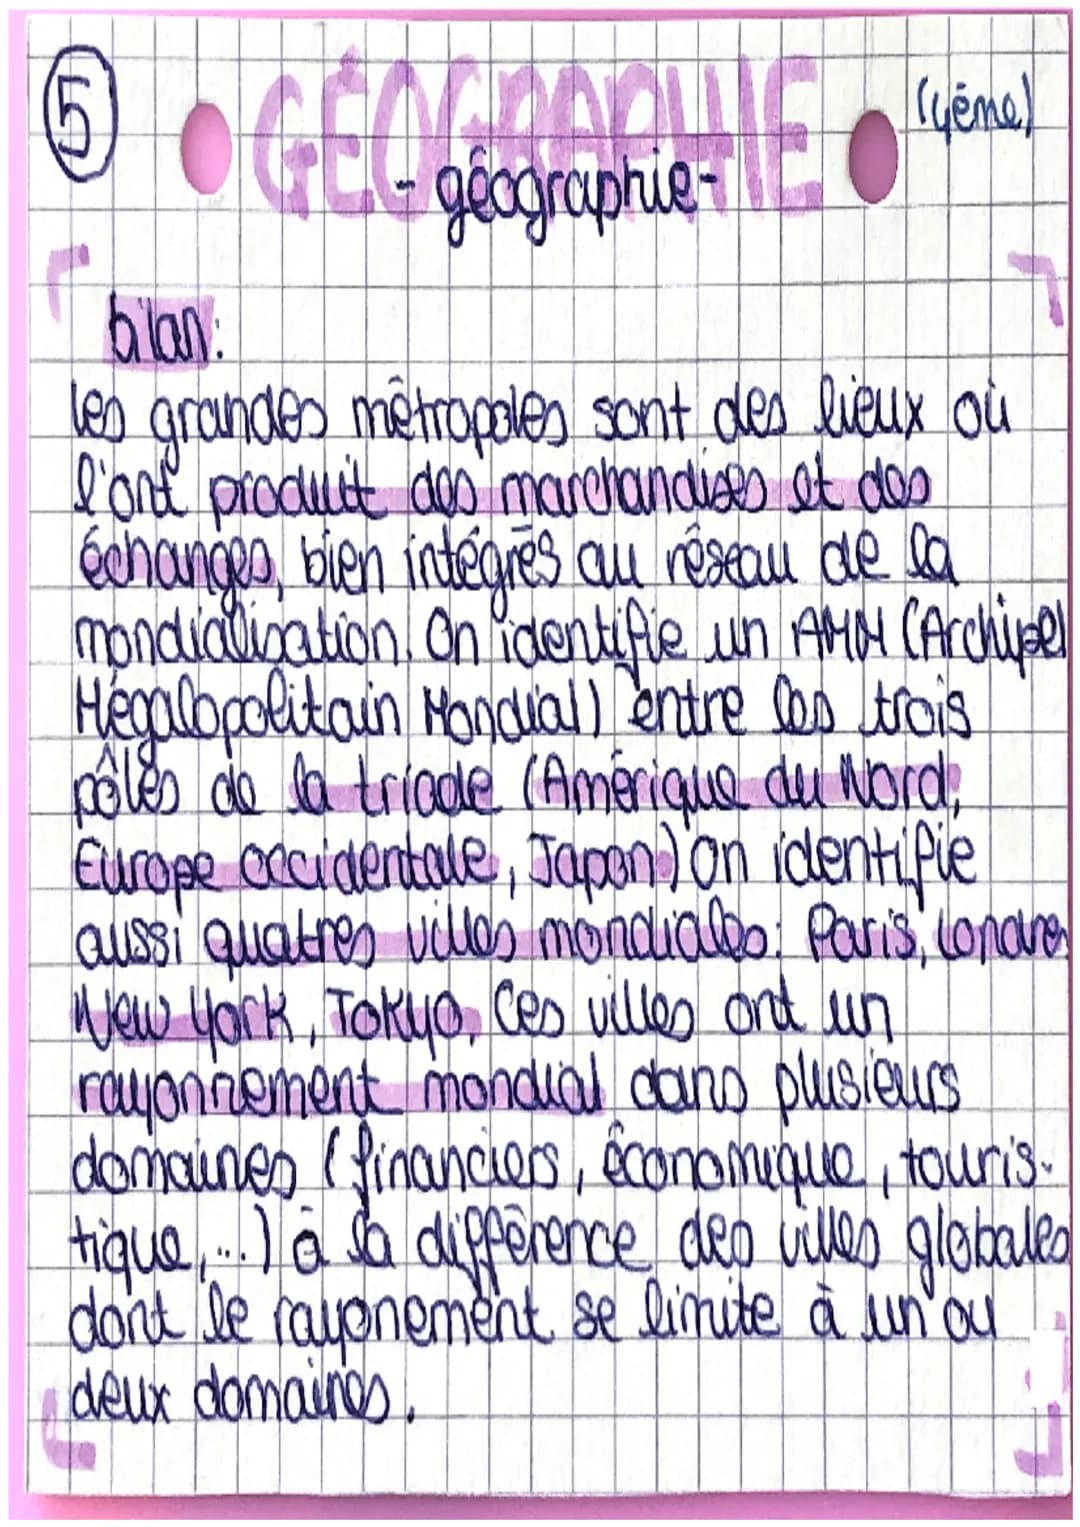 5
GÉOGRAPHIE
(4ème)
- géographie -
bilan:
les grandes métropoles sont des lieux où
l'ont produit des marchandises et des
échanges, bien intégrés au réseau de la
mondialisation. On identifie un AMM (Archipel
Mégalopolitain Mondial) entre les trois
pôles de la triade (Amérique du Nord,
Europe occidentale, Japon.) On identifie
aussi quatres villes mondiales: Paris, Londres
New York, Tokyo, Ces villes ont un
rayonnement mondial dans plusieurs
domaines (financiers, économique, touris-
tique,...) à la différence des villes globales
dont le rayonement se limite à un ou
deux domaines.